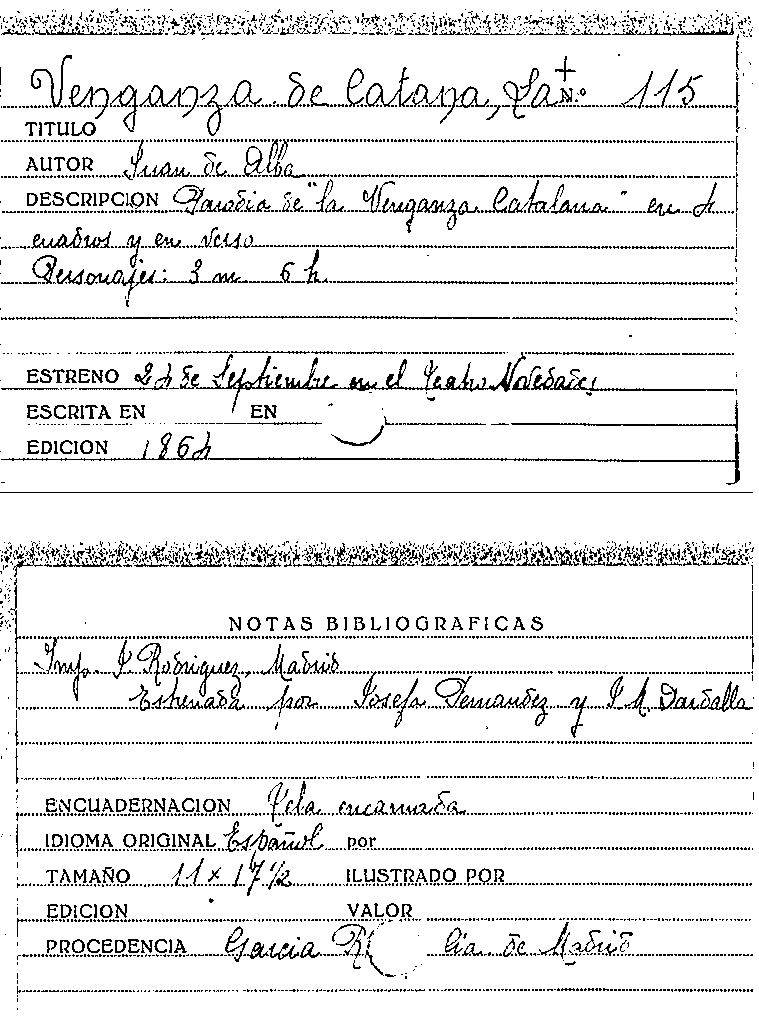 Venganza de Catana, La N.º 115
TITULO
AUTOR Juan de Alba
DESCRIPCION Parodia de "la Venganza Catalana" en 4
cuadros y en verso
Personajes: 3 m 6 h.
ESTRENO 24 de Septiembre en el Teatro Novedades
ESCRITA EN EN
EDICION 1864
NOTAS BIBLIOGRAFICAS
Imp. J. Rodriguez, Madrid
Estrenada por Josefa Fernandez y J. A. Dardalla
ENCUADERNACION Tela encarnada
IDIOMA ORIGINAL Español por
TAMAÑO 11 x 17 1/2 ILUSTRADO POR
EDICION VALOR
PROCEDENCIA Garcia Cia. de Madrid